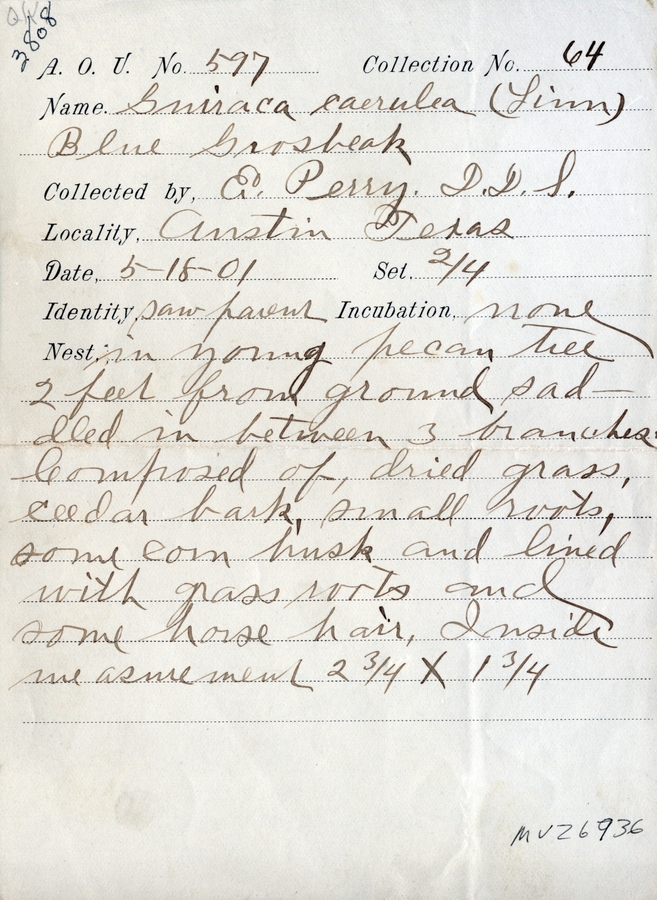 3808
A. O. U. No. 597 Collection No. 64
Name. Guiraca caerulea (Linn)
Blue Grosbeak
Collected by, E. Perry. D.D.S.
Locality, Austin Texas
Date, 5-18-01 Set. 2/4
Identity, saw parent Incubation, none
Nest, in young pecan tree
2 feet from ground sad-
dled in between 3 branches.
Composed of, dried grass,
cedar bark, small roots,
some corn husk and lined
with grass roots and
some horse hair, Inside
measurement 2 3/4 X 1 3/4
MVZ6936